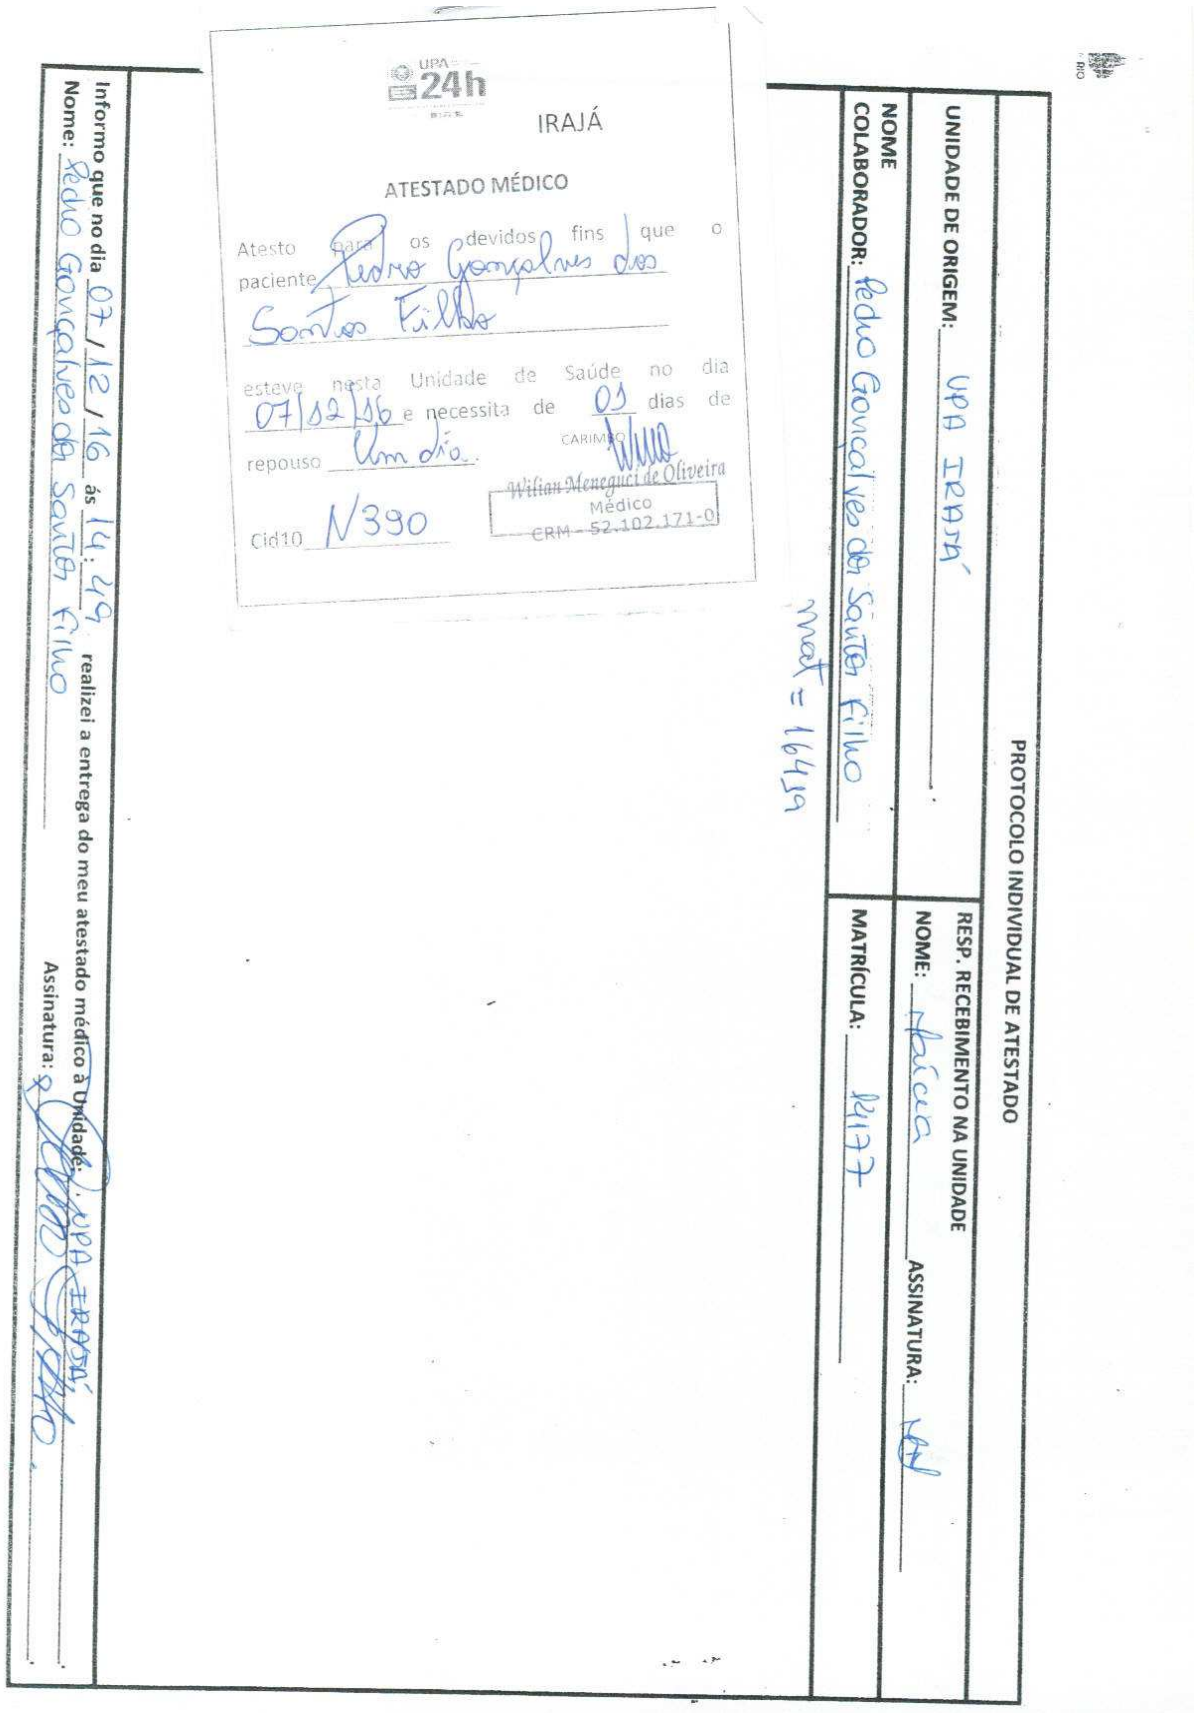 RIO
PROTOCOLO INDIVIDUAL DE ATESTADO
UNIDADE DE ORIGEM: UPA IRAJÁ
RESP. RECEBIMENTO NA UNIDADE
NOME: Márcia ASSINATURA:
NOME
COLABORADOR: Pedro Gonçalves dos Santos Filho
MATRÍCULA: 14177
mat = 16419
UPA
24h
IRAJÁ
ATESTADO MÉDICO
Atesto para os devidos fins que o
paciente Pedro Gonçalves dos
Santos Filho
esteve nesta Unidade de Saúde no dia
07/12/16 e necessita de 01 dias de
repouso Um dia.
CARIMBO
Wilian Meneguci de Oliveira
Médico
CRM - 52.102.171-0
Cid10 N390
Informo que no dia 07/12/16 ás 14:49 realizei a entrega do meu atestado médico à Unidade: UPA IRAJÁ
Nome: Pedro Gonçalves dos Santos Filho Assinatura: